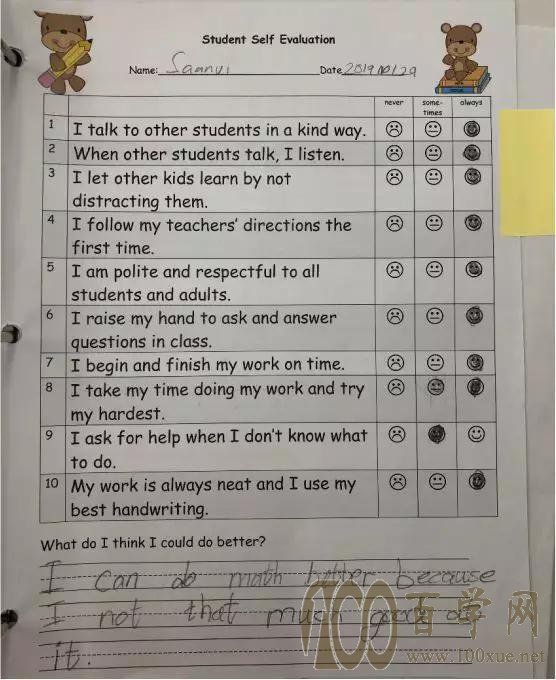 Student Self Evaluation
Name: Saanvi Date 2019/10/29
never some-times always
1 I talk to other students in a kind way.
2 When other students talk, I listen.
3 I let other kids learn by not
distracting them.
4 I follow my teachers' directions the
first time.
5 I am polite and respectful to all
students and adults.
6 I raise my hand to ask and answer
questions in class.
7 I begin and finish my work on time.
8 I take my time doing my work and try
my hardest.
9 I ask for help when I don't know what
to do.
10 My work is always neat and I use my
best handwriting.
What do I think I could do better?
I can do math better because
I not that much good at
it.
100百学网
www.100xue.net